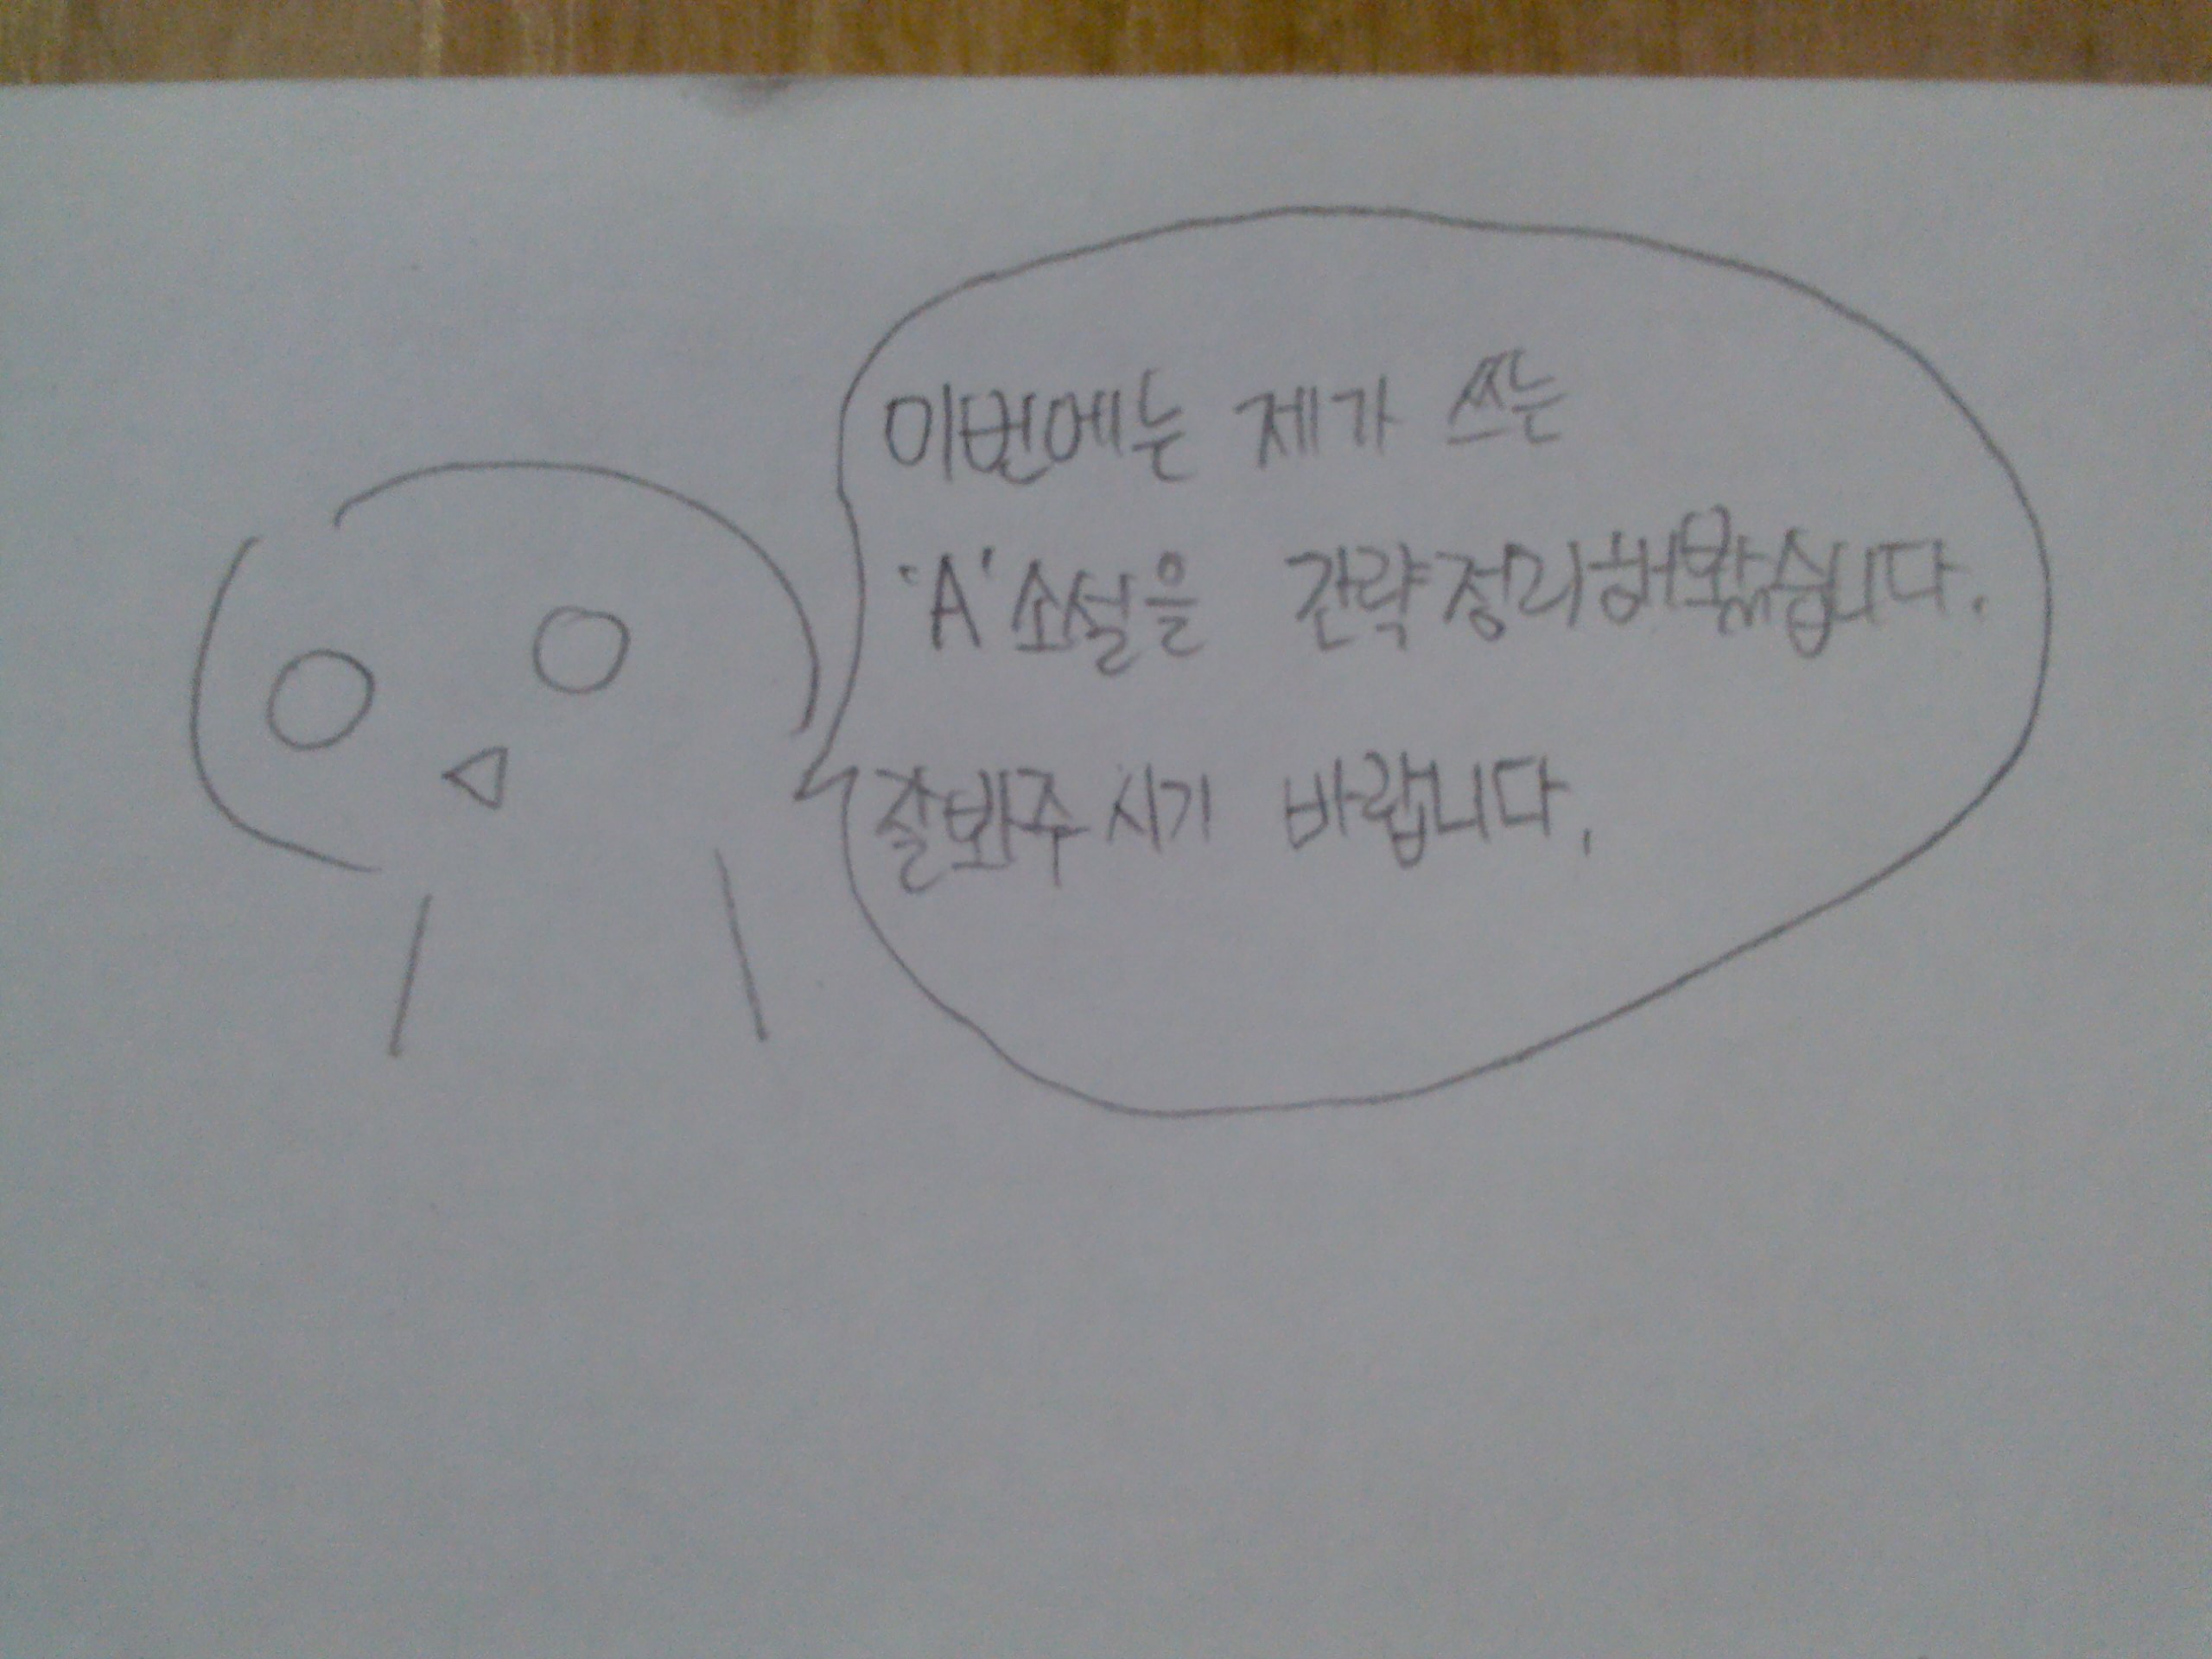 이번에는 제가 쓰는
'A' 소설을 간략정리해봤습니다.
잘봐주시기 바랍니다.